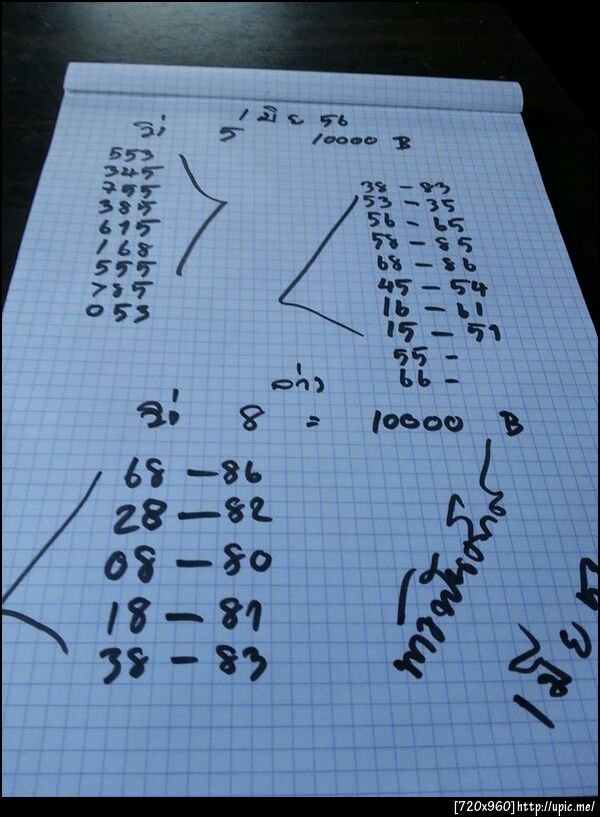 1 มิย 56
วิ่ง 5 10000 B
553
345
755
385
615
168
555
785
053
38 - 83
53 - 35
56 - 65
58 - 85
68 - 86
45 - 54
16 - 61
15 - 51
55 -
66 -
ล่าง
วิ่ง 8 = 10000 B
68 - 86
28 - 82
08 - 80
18 - 81
38 - 83
1 มิย 5
[720x960]http://upic.me/